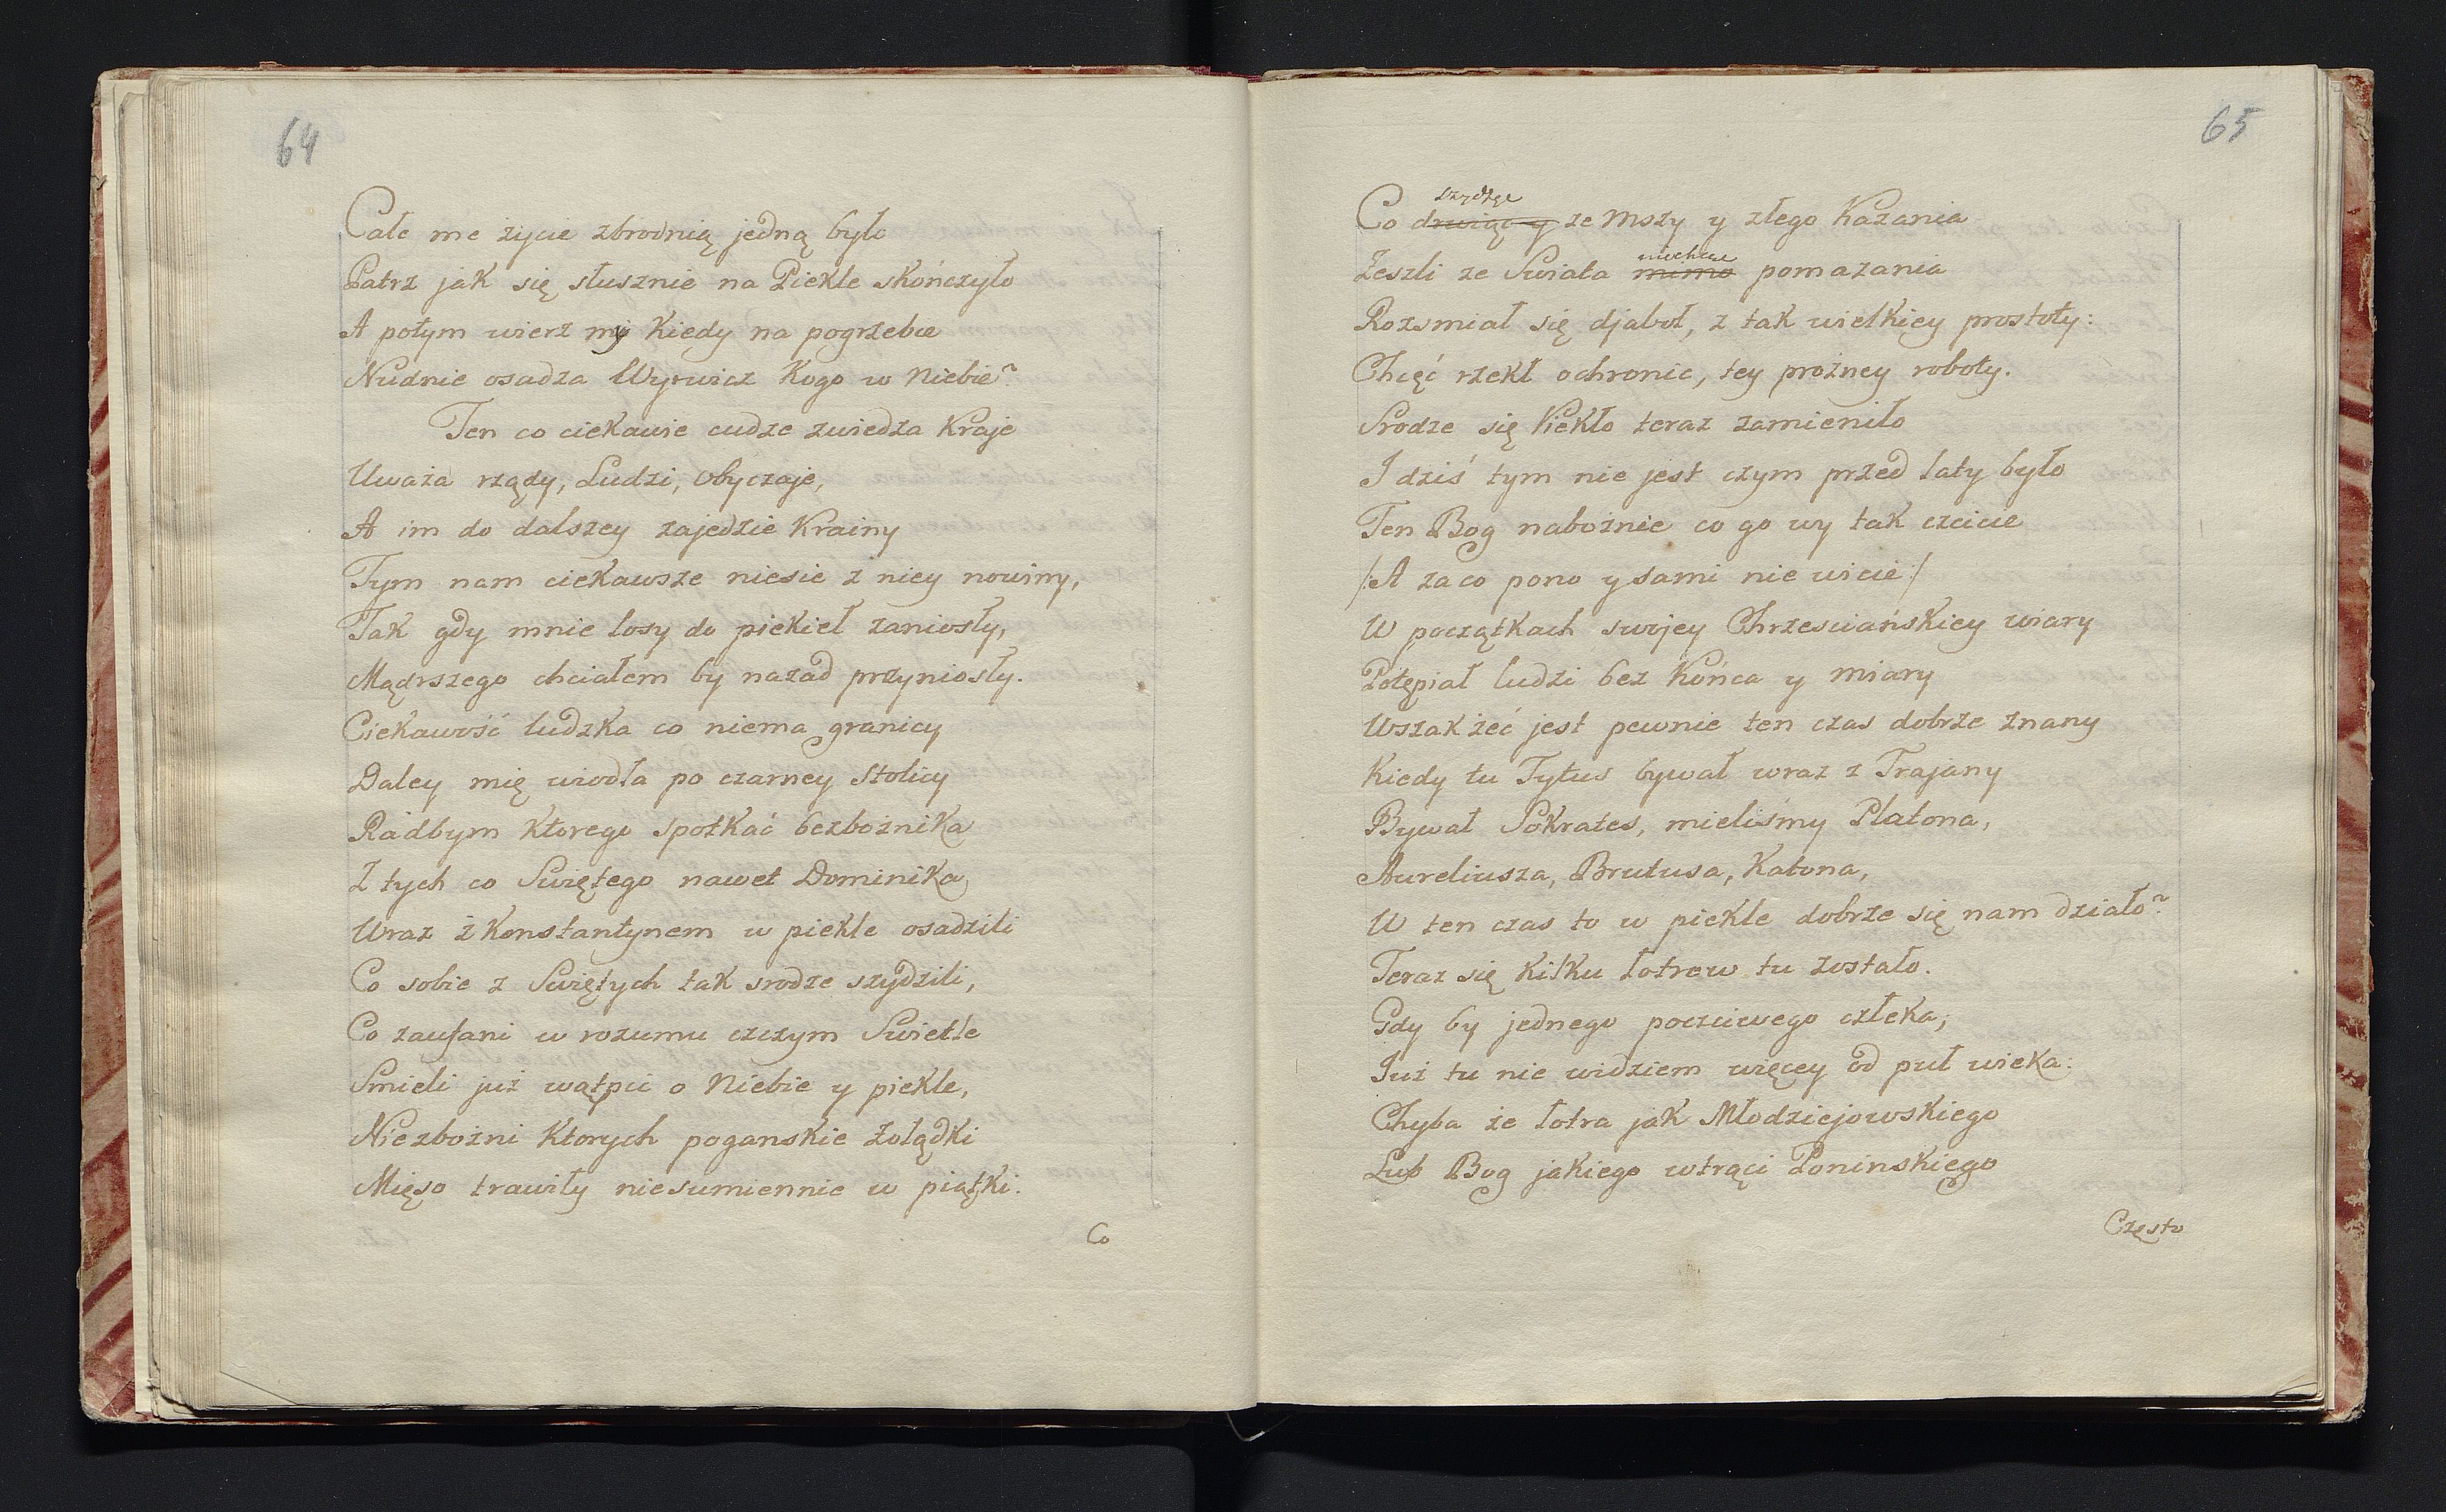 64
Całe me życie zbrodnią jedną było
Patrz jak się słusznie na Piekle skończyło
A potym wierz my Kiedy na pogrzebie
Nudnie osadza Wyrwicz Kogo w Niebie?
Ten co ciekawie cudze zwiedza Kraje
Uważa rządy, Ludzi, Obyczaje,
A im do dalszey zajedzie Krainy
Tym nam ciekawsze niesie z niey nowiny,
Tak gdy mnie losy do piekieł zaniosły,
Mądrszego chciałem by nazad przyniosły.
Ciekawość ludzka co niema granicy
Daley mię wiodła po czarney Stolicy
Rádbym Ktorego spotkać bezbożnika
Z tych co Swiętego nawet Dominika
Wraz z Konstantynem w piekle osadzili
Co sobie z Swiętych tak srodze szydzili,
Co zaufani w rozumu czczym Swietle
Smieli już wątpić o Niebie y piekle,
Niezbożni Ktorych poganskie żołądki
Mięso trawiły niesumiennie w piątki.
Co
65
szydząc
Co drwiąc y ze Mszy y złego Kazania
niechcąc
Zeszli ze Swiata mimo pomazania
Rozsmiał się djabuł, z tak wielkiey prostoty:
Chcąć rzekł ochronic, tey prożney roboty.
Srodze się Piekło teraz zamieniło
I dziś tym nie jest czym przed laty było
Ten Bog nabożnie co go wy tak czcicie
/:A zaco pono y sami nie wicie:/
W początkach swojey Chrzesciańskiey wiary
Potępiał ludzi bez Końca y miary
Wszakżeć jest pewnie ten czas dobrze znany
Kiedy tu Tytus bywał wraz z Trajany
Bywał Sokrates, mieliśmy Platona,
Aureliusza, Brutusa, Katona,
W ten czas to w piekle dobrze się nam działo?
Teraz się kilku łotrow tu zostało.
Gdy by jednego poczciwego człeka,
Już tu nie widziem więcey od puł wieka:
Chyba że łotra jak Młodziejowskiego
Lub Bog jakiego wtrąci Poninskiego
Często